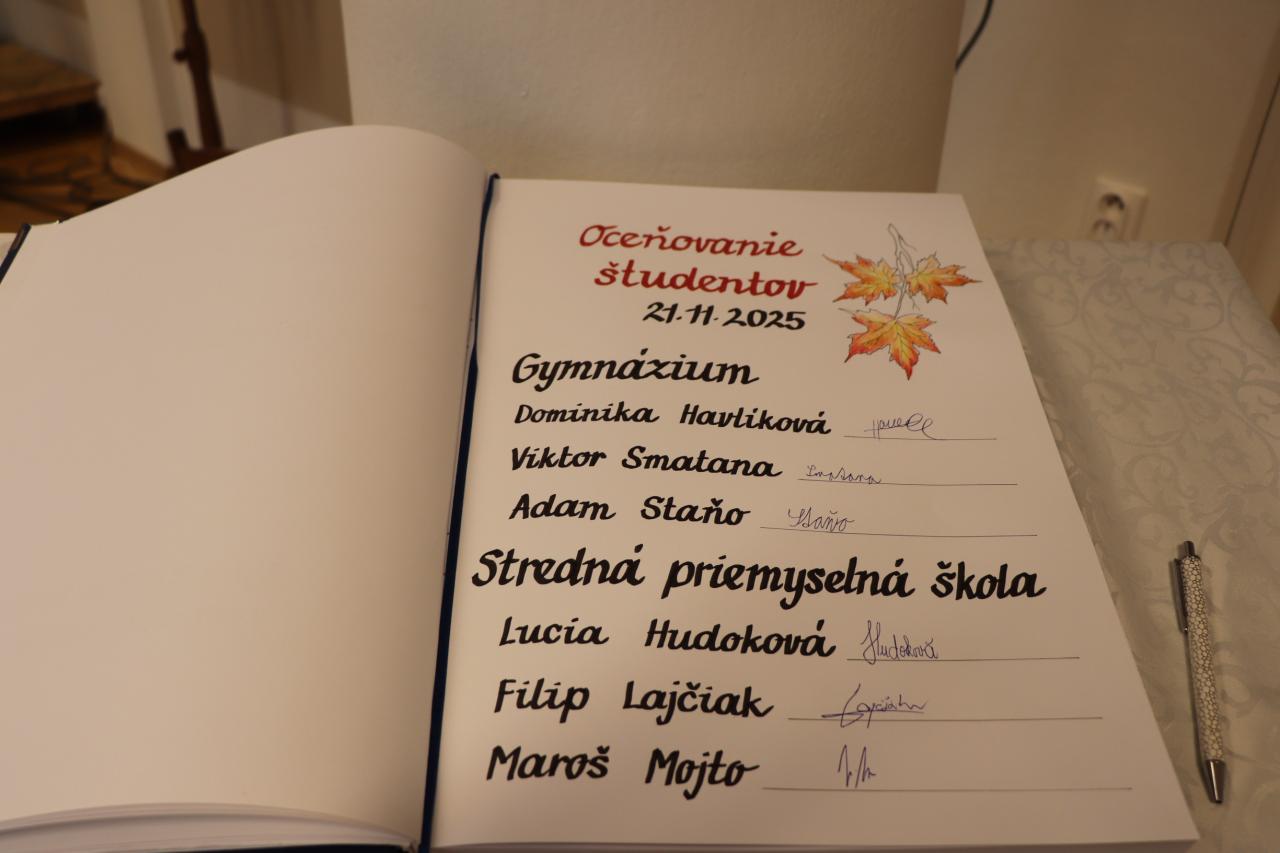 Oceňovanie
študentov
21.11.2025
Gymnázium
Dominika Havlíková
Viktor Smatana Smatana
Adam Staňo Staňo
Stredná priemyselná škola
Lucia Hudoková Hudoková
Filip Lajčiak
Maroš Mojto